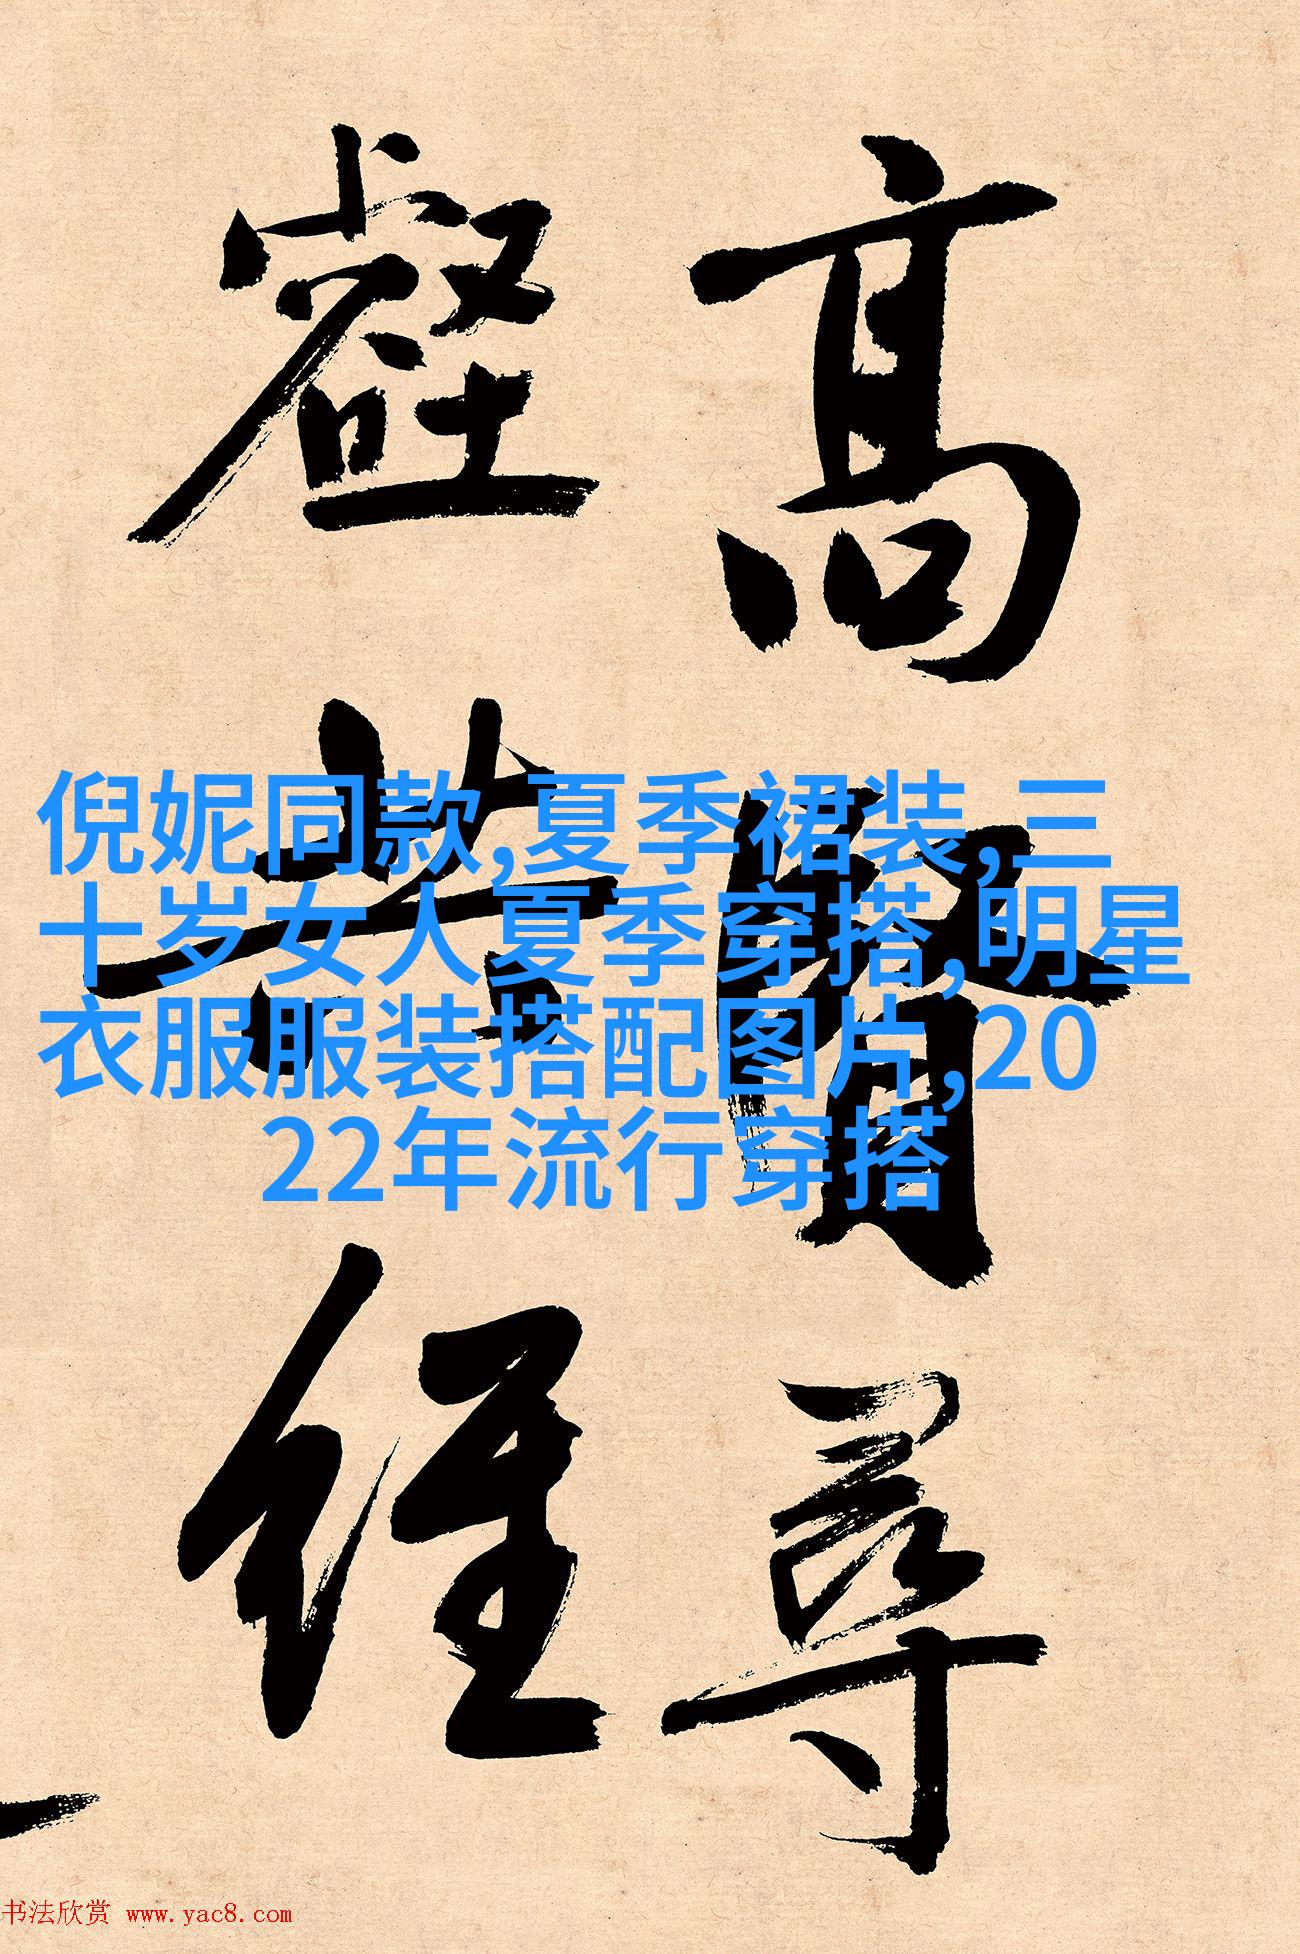 高賢尋
壑
經
倪妮同款,夏季裙装,三
十岁女人夏季穿搭,明星
衣服服装搭配图片,20
22年流行穿搭
书法欣赏 www.yac8.com